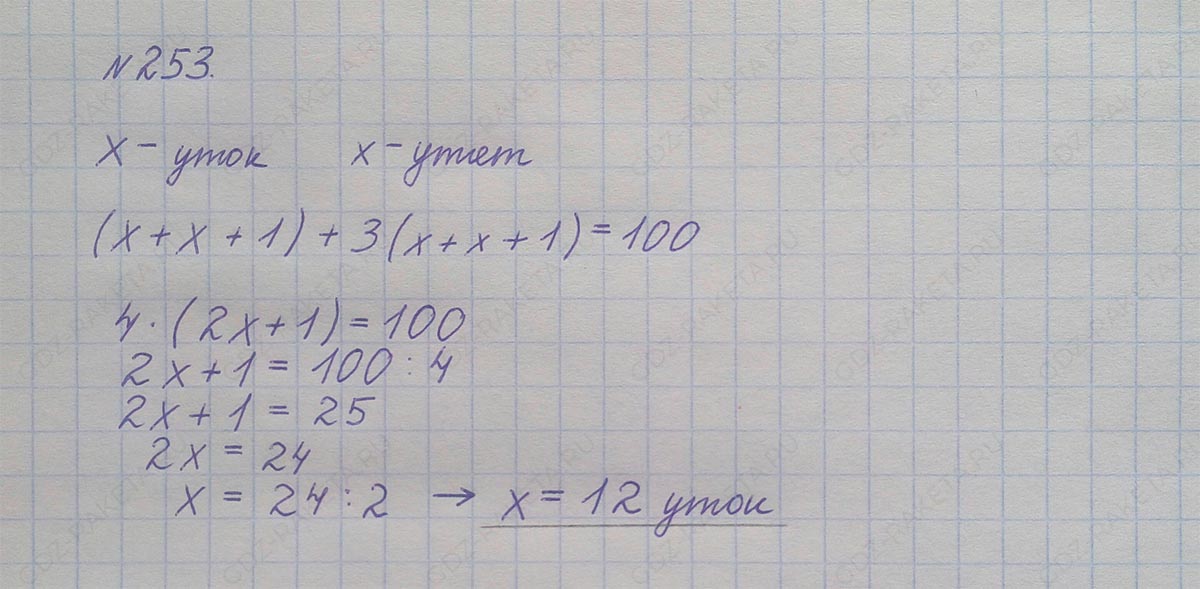 №253.
х - уток х - утят
(х + х + 1) + 3 (х + х + 1) = 100
4 · (2х + 1) = 100
2х + 1 = 100 : 4
2х + 1 = 25
2х = 24
х = 24 : 2 → х = 12 уток
GDZ-RAKETA.RU